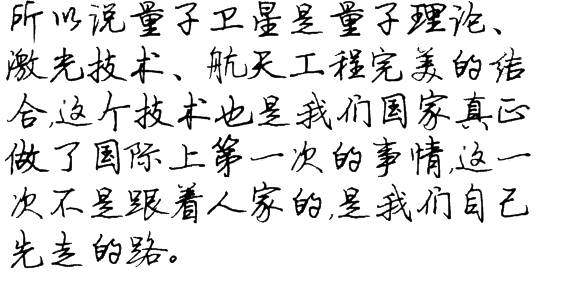 所以说量子卫星是量子理论、
激光技术、航天工程完美的结
合,这个技术也是我们国家真正
做了国际上第一次的事情,这一
次不是跟着人家的,是我们自己
先走的路。